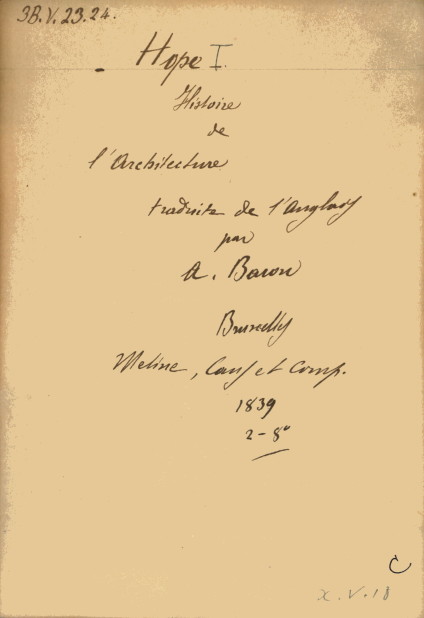 3B.V.23.24.
Hope I.
Histoire
de
l'Architecture
traduite de l'Anglais
par
A. Baron
Bruxelles
Meline, Cans et Comp.
1839
2-8°
C
X.V.18